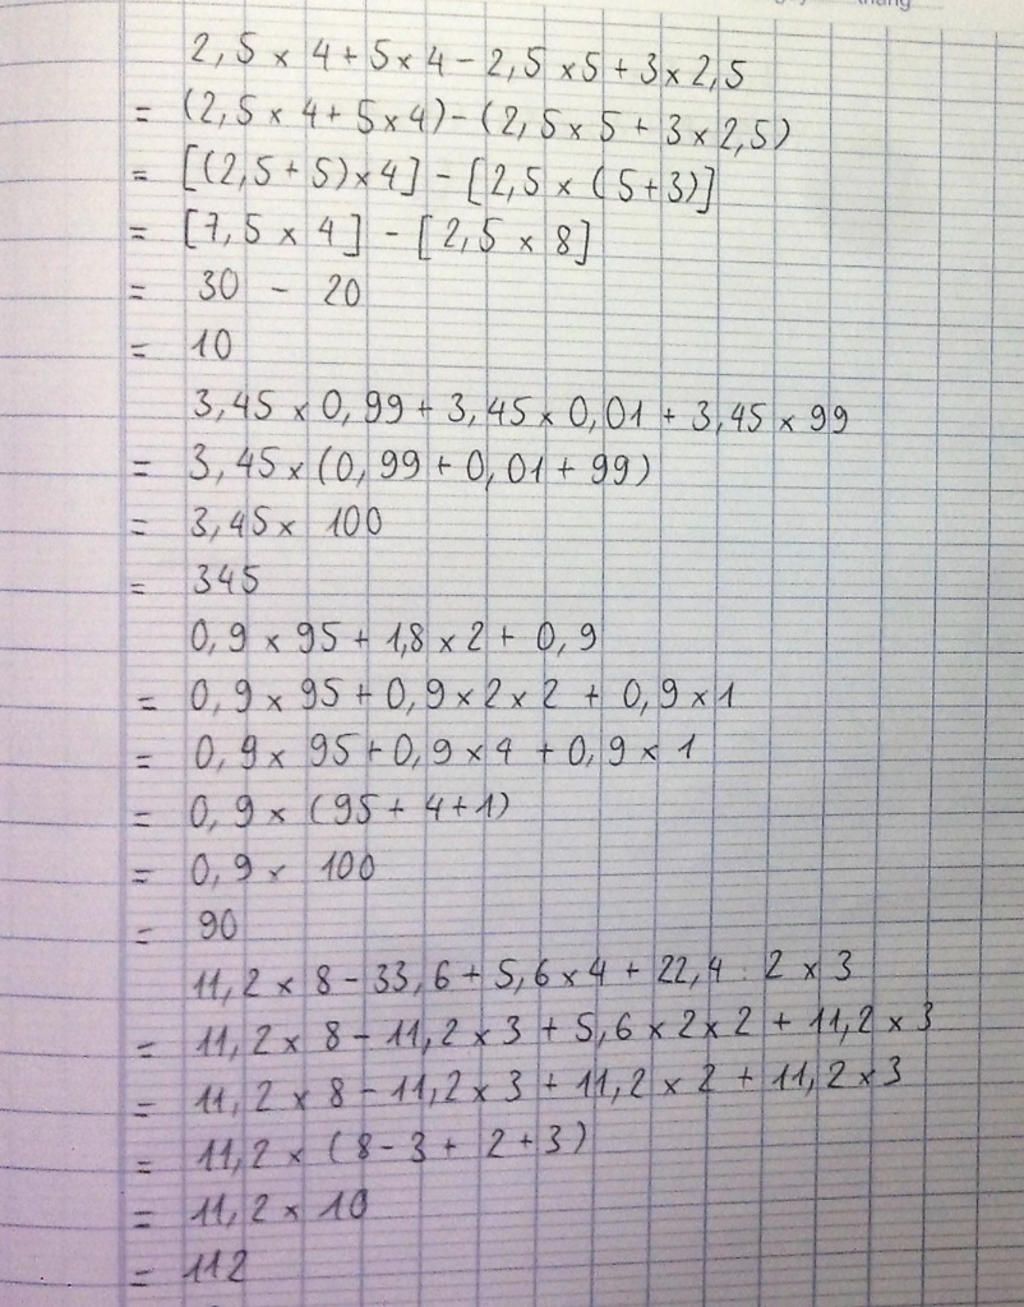 2,5 × 4 + 5 × 4 - 2,5 × 5 + 3 × 2,5
= (2,5 × 4 + 5 × 4) - (2,5 × 5 + 3 × 2,5)
= [(2,5 + 5) × 4] - [2,5 × (5 + 3)]
= [7,5 × 4] - [2,5 × 8]
= 30 - 20
= 10
3,45 × 0,99 + 3,45 × 0,01 + 3,45 × 99
= 3,45 × (0,99 + 0,01 + 99)
= 3,45 × 100
= 345
0,9 × 95 + 1,8 × 2 + 0,9
= 0,9 × 95 + 0,9 × 2 × 2 + 0,9 × 1
= 0,9 × 95 + 0,9 × 4 + 0,9 × 1
= 0,9 × (95 + 4 + 1)
= 0,9 × 100
= 90
11,2 × 8 - 33,6 + 5,6 × 4 + 22,4 : 2 × 3
= 11,2 × 8 - 11,2 × 3 + 5,6 × 2 × 2 + 11,2 × 3
= 11,2 × 8 - 11,2 × 3 + 11,2 × 2 + 11,2 × 3
= 11,2 × (8 - 3 + 2 + 3)
= 11,2 × 10
= 112